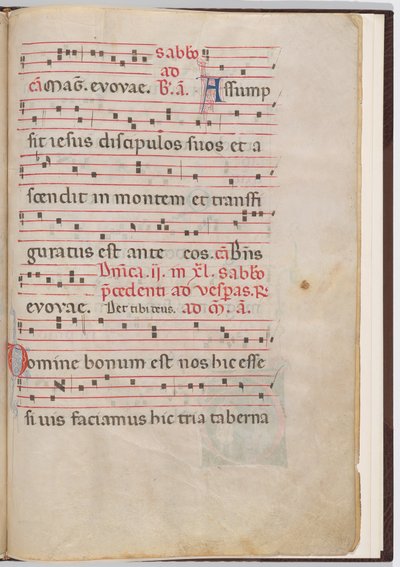 sabbo
ad
cā Mag̃. evovae. B̃. ā. Assump
sit iesus discipulos suos et a
scendit in montem et transfi
guratus est ante eos. cā Bñs
Dñica .ii. in xl. sabbo
p̄cedenti ad vesp̄as. R.
evovae. Det tibi deus. ad m̃. ā.
Domine bonum est nos hic esse
si vis faciamus hic tria taberna